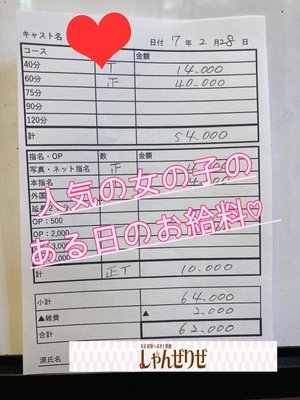 キャスト名
日付 17年 2月 28日
コース 金額
40分 T 14.000
60分 正 40.000
75分
90分
120分
計 54.000
指名・OP 金額
写真・ネット指名 正
本指名
外国
人気の女の子の
OP:500
OP:2,000
ある日のお給料♡
計 正T 10.000
小計 64.000
▲雑費 ▲ 2.000
合計 62.000
源氏名
しゃんぜりぜ